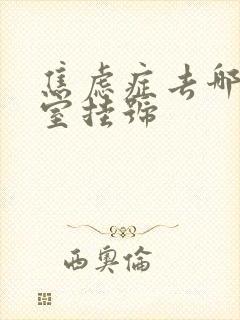 焦虑症去哪
室挂號
西奧倫